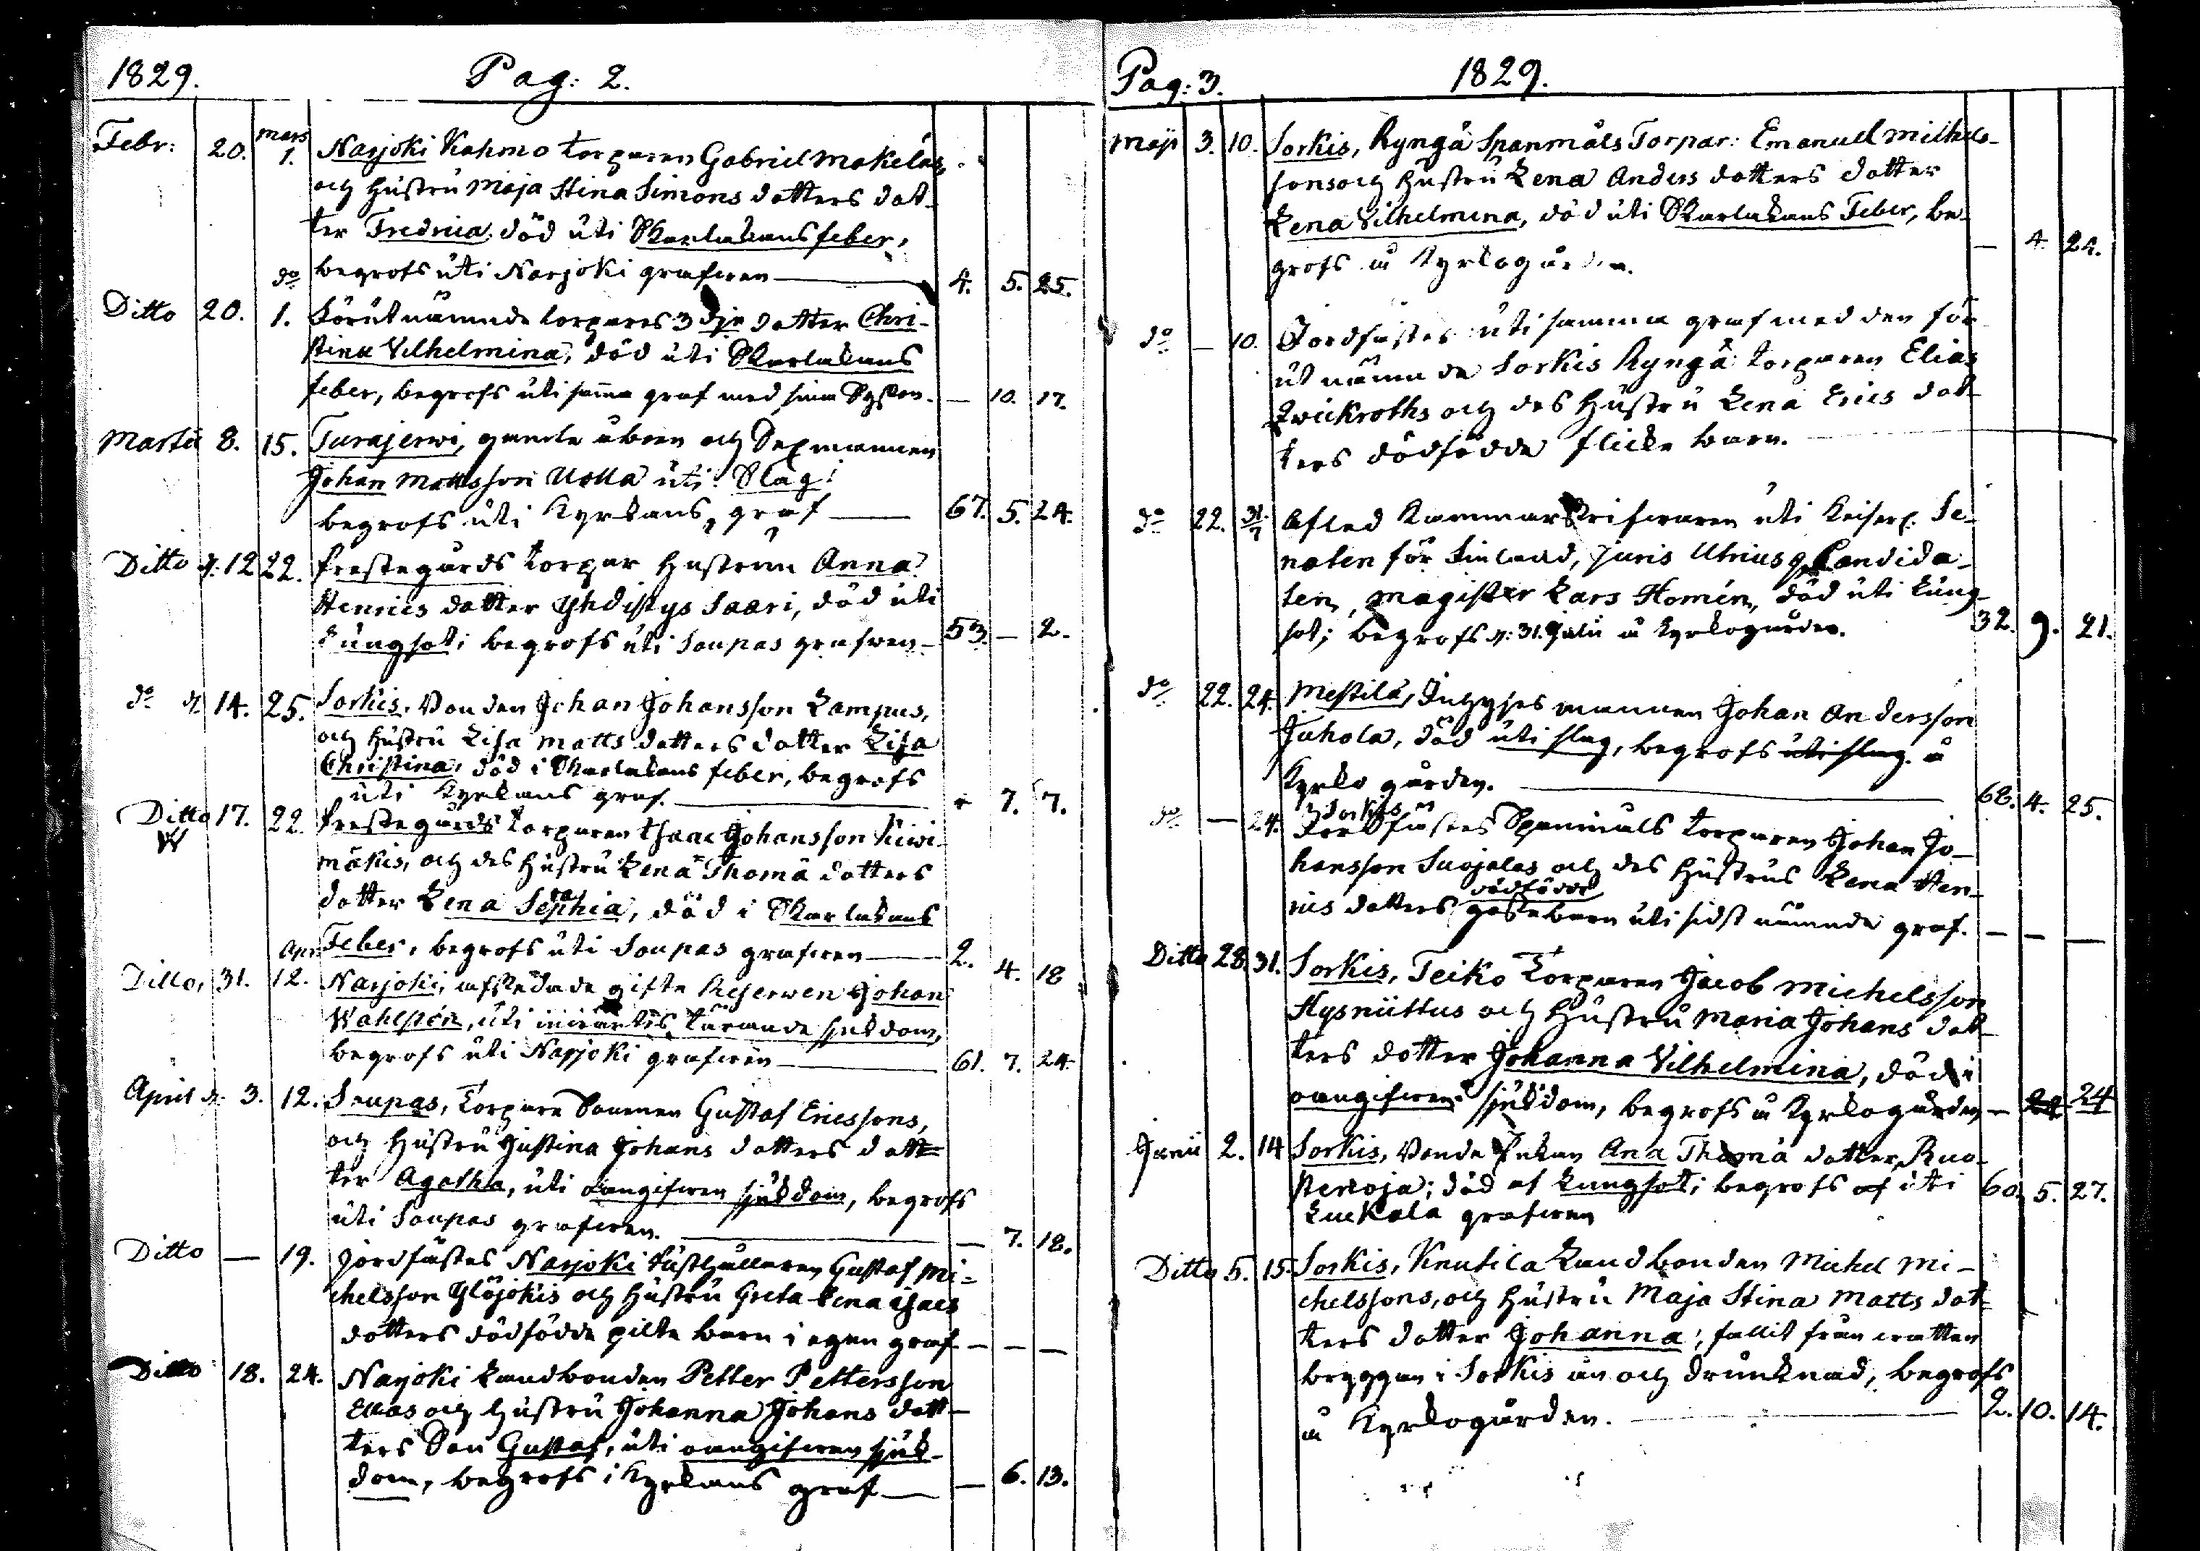 1829. Pag: 2.
Febr: 20. mars 1. Narjoki Kahmo torparen Gabriel Makeläs
och hustru Maja Stina Simons dotters dot-
ter Fredrica, död uti Skarlakansfeber,
begrofs uti Narjoki grafwen — 4. 5. 25.
Ditto 20. do 1. Förutnämnde torpares 3dje dotter Chri-
stina Vilhelmina, död uti Skarlakans
feber, begrofs uti samma graf med sina Syster. — 10. 17.
Martii 8. 15. Turajerwi, gamla åboen och Sexmannen
Johan Mattsson Uotta uti Slag;
begrofs uti Kyrkans graf — 67. 5. 24.
Ditto d: 12 22. Prestegårds torpar hustrun Anna
Henrics dotter Yhdistys Saari, död uti
Lungsot; begrofs uti Soupas grafwen — 53. — 2.
do d. 14. 25. Sorkis, Bonden Johan Johansson Lampus,
och hustru Lisa Matts dotters dotter Lisa
Christina, död i Skarlakans feber, begrofs
uti Kyrkans graf. — 7. 7.
Ditto 17. 22. Prestegårds torparen Isaac Johansson Kiwi-
mäkis, och des hustru Lena Thomä dotters
dotter Lena Sophia, död i Skarlakans
Feber, begrofs uti Soupas grafwen — 2. 4. 18
Ditto, 31. Apr. 12. Narjoki, afskedade gifte Reserwen Johan
Wahlsten, uti inwärtes tärande sjukdom,
begrofs uti Narjoki grafwen — 61. 7. 24.
April d. 3. 12. Soupas, Torpare Sonen Gustaf Ericssons,
och hustru Justina Johans dotters dott=
ter Agatha, uti oangifwen sjukdom, begrofs
uti Soupas grafwen. — — 7. 18.
Ditto — 19. Jordfästes Narjoki rusthållaren Gustaf Mi=
chelsson Ylöjokis och hustru Greta Lena Isacs
dotters dödfödde pilte barn i egen graf — — —
Ditto 18. 24. Narjoki Landbonden Petter Pettersson
Ellas och hustru Johanna Johans dott-
ters Son Gustaf, uti oangifwen sjuk-
dom, begrofs i Kyrkans graf — — 6. 13.
Pag: 3. 1829.
Maji 3. 10. Sorkis, Ryngä Spanmåls Torpar: Emanuel Michels-
sons och hustru Lena Anders dotters dotter
Lena Vilhelmina, död uti Skarlakans Feber, be-
grofs å Kyrkogården. — 4. 24.
do — 10. Jordfästes uti samma graf med den för
ut nämnde Sorkis Ryngä torparen Elias
Zwickroths och des hustru Lena Erics dot-
ters dödfödde flicke barn.
do 22. 31/7 Afled Kammarskrifwaren uti Keiserl. Se-
naten för Finland, Juris Utriusq Candida-
ten, Magister Lars Homén, död uti Lung-
sot; begrofs d: 31. Julii å Kyrkogården. 32. 9. 21.
do 22. 24. Mestilä, Inhyses mannen Johan Andersson
Juhola, död uti slag, begrofs uti slag. å
Kyrko gården. — 68. 4. 25.
do — 24. Sorkis
Jordfästes Spanmåls torparen Johan Jo-
hansson Suojalas och des hustrus Lena Hen-
rics dotters dödfödde gossebarn uti sidst nämnde graf. — — —
Ditto 28. 31. Sorkis, Teiko Torparen Jacob Michelsson
Hysniittus och hustru Maria Johans dot-
ters dotter Johanna Vilhelmina, död i
oangifwen sjukdom, begrofs å Kyrkogården — 24 24
Junii 2. 14 Sorkis, Bonde Enkan Ana Thomä dotter Ruo-
stenoja; död af Lungsot; begrofs af uti 60. 5. 27.
Luckala grafwen
Ditto 5. 15. Sorkis, Knutila Landbonden Michel Mi-
chelssons, och hustru Maja Stina Matts dot=
ters dotter Johanna; fallit från watten
bryggan i Sorkis ån och drunknad, begrofs
å Kyrkogården. — 2. 10. 14.